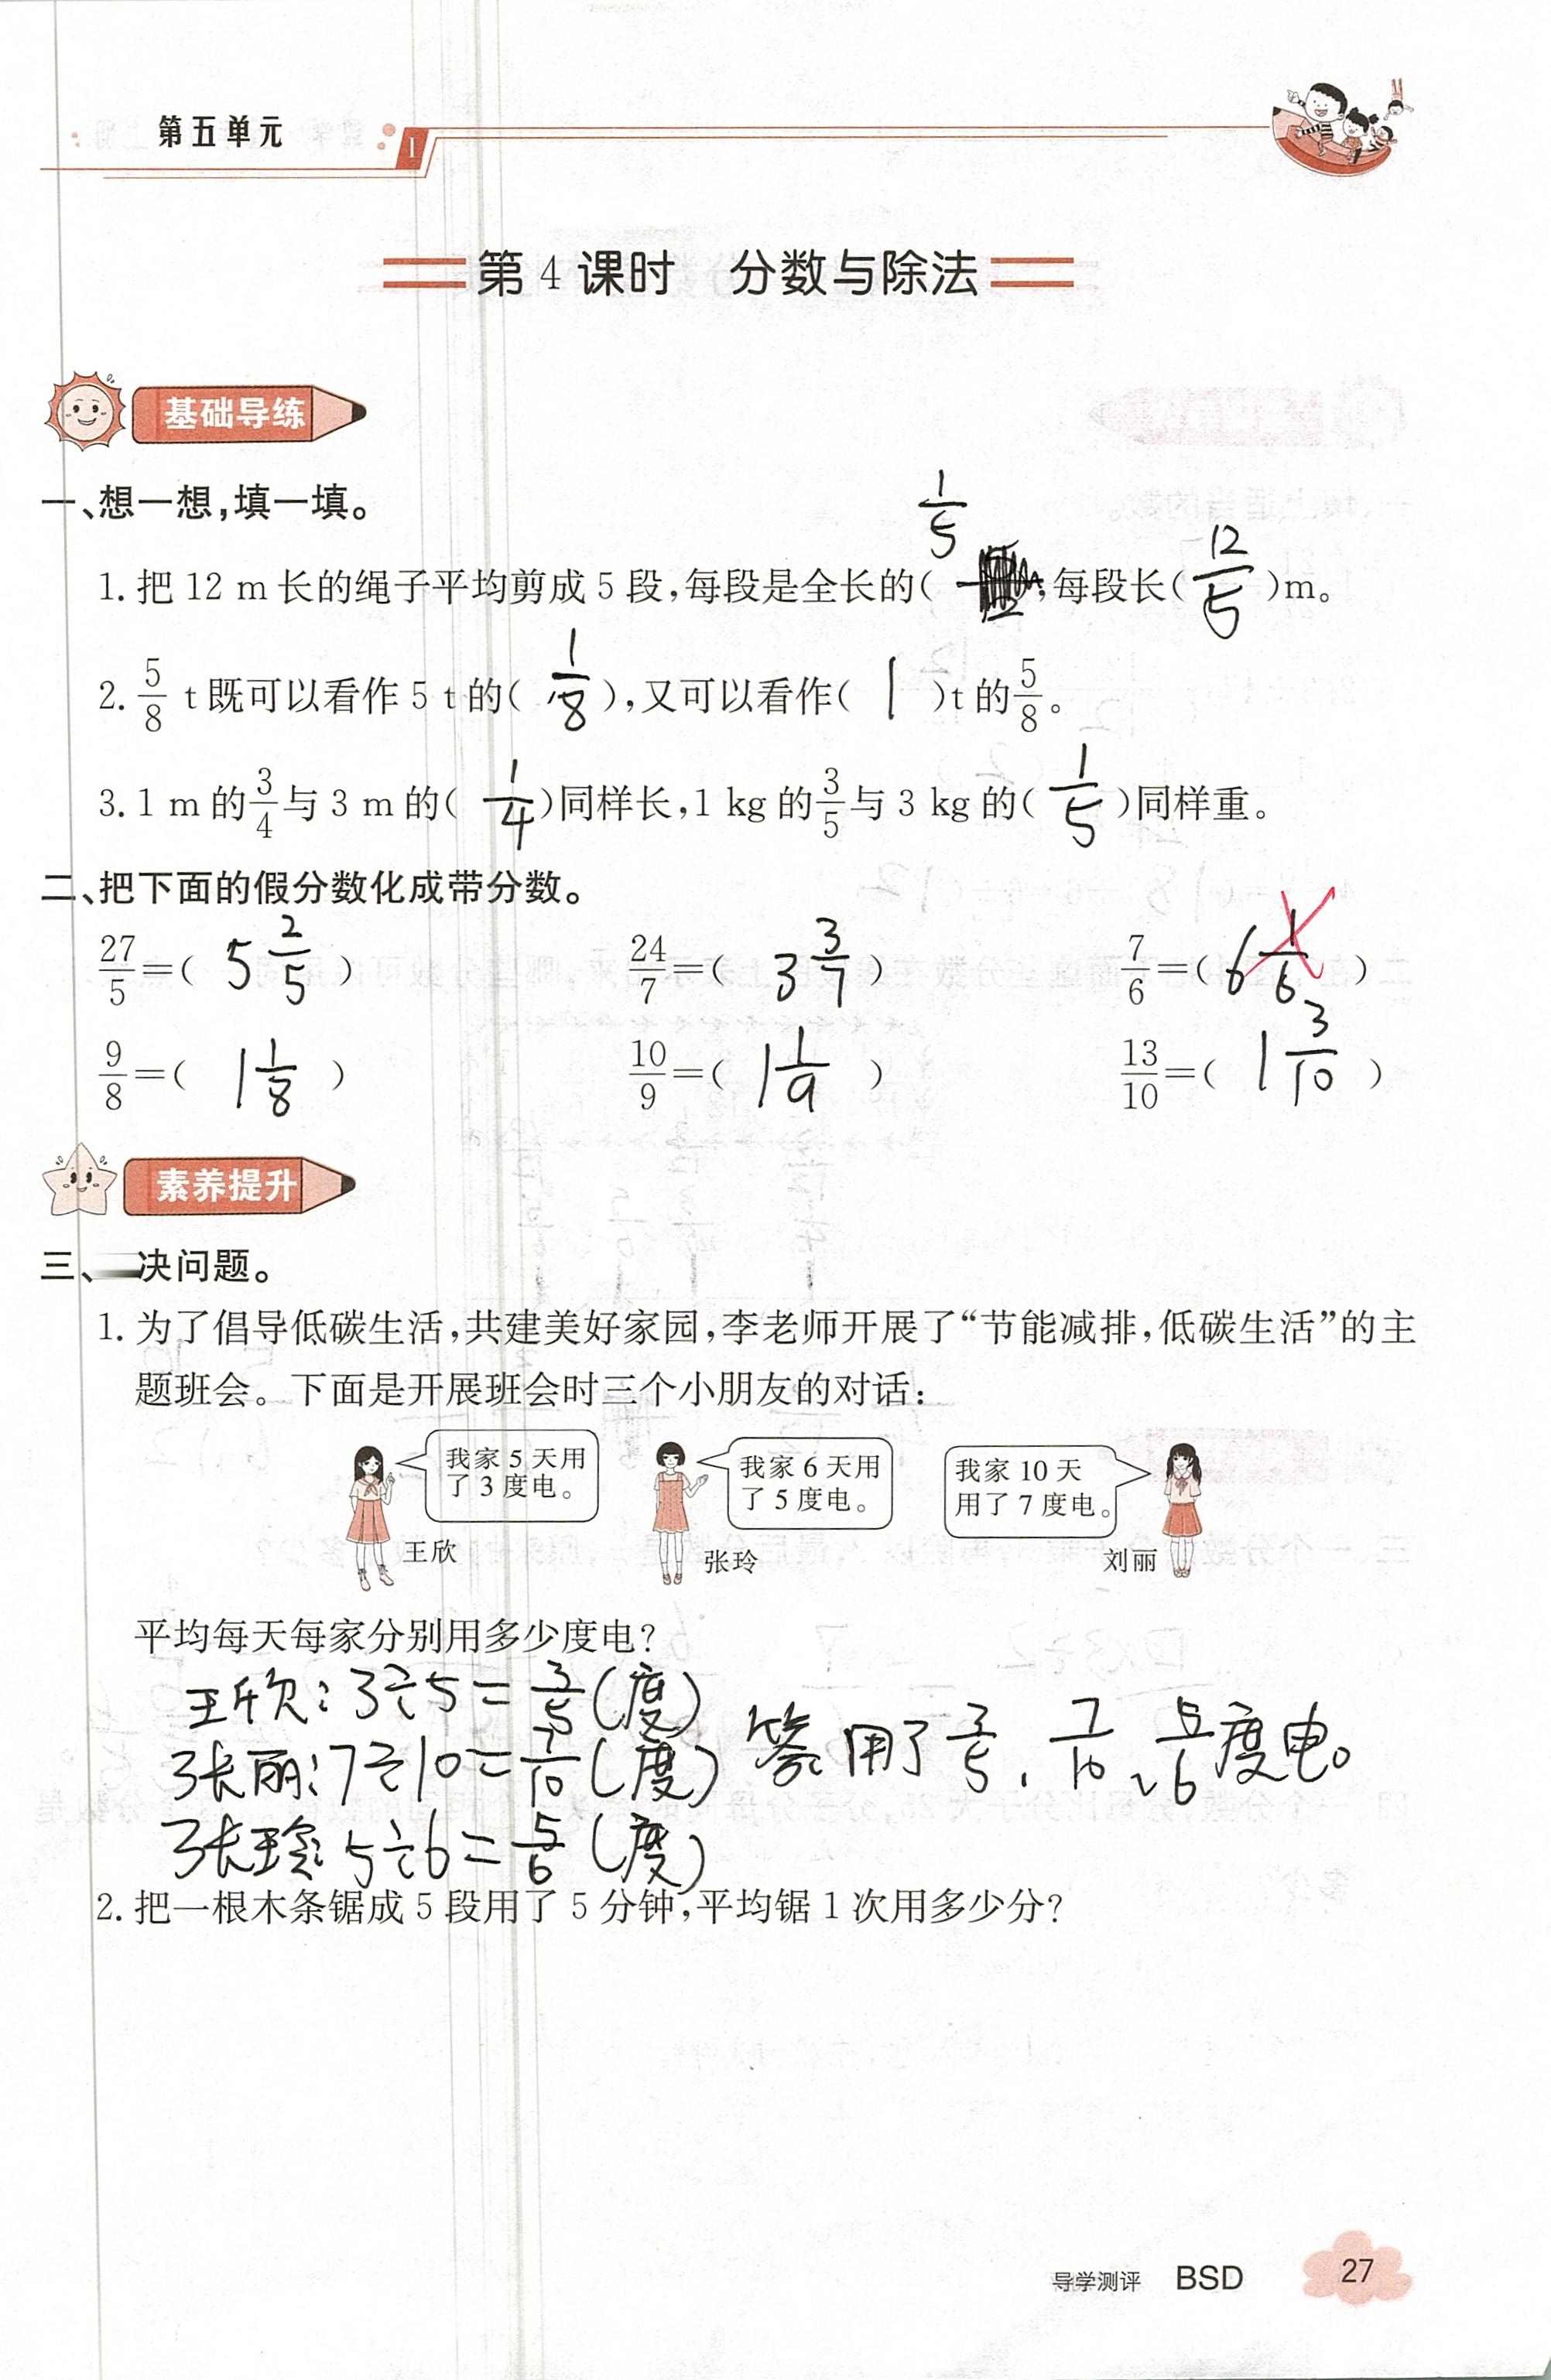 第五单元
第 4 课时 分数与除法
基础导练
一、想一想,填一填。
1. 把 12 m 长的绳子平均剪成 5 段,每段是全长的( 1/5 ,每段长( 12/5 )m。
2. 5/8 t 既可以看作 5 t 的( 1/8 ),又可以看作( 1 )t 的 5/8 。
3. 1 m 的 3/4 与 3 m 的( 1/4 )同样长,1 kg 的 3/5 与 3 kg 的( 1/5 )同样重。
二、把下面的假分数化成带分数。
27/5=( 5 2/5 ) 24/7=( 3 3/7 ) 7/6=( 6 1/6 )
9/8=( 1 1/8 ) 10/9=( 1 1/9 ) 13/10=( 1 3/10 )
素养提升
三、决问题。
1. 为了倡导低碳生活,共建美好家园,李老师开展了“节能减排,低碳生活”的主
题班会。下面是开展班会时三个小朋友的对话:
我家 5 天用
了 3 度电。
王欣
我家 6 天用
了 5 度电。
张玲
我家 10 天
用了 7 度电。
刘丽
平均每天每家分别用多少度电?
王欣:3÷5=3/5(度)
张丽:7÷10=7/10(度)
张玲:5÷6=5/6(度)
答:用了3/5、7/10、5/6度电。
2. 把一根木条锯成 5 段用了 5 分钟,平均锯 1 次用多少分?
导学测评 BSD 27